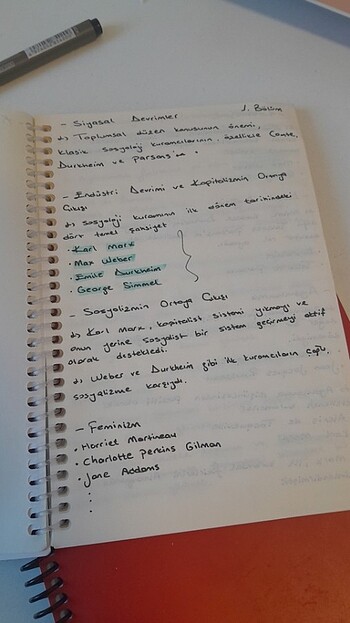 1. Bölüm
- Siyasal Devrimler
↳) Toplumsal düzen konusunun önemi,
klasik sosyoloji kuramcılarının, özellikle Comte,
Durkheim ve Parsons'
- Endüstri Devrimi ve Kapitalizmin Ortaya
Çıkışı
↳) Sosyoloji kuramının ilk dönem tarihindeki
dört temel şahsiyet
• Karl Marx
• Max Weber
• Emile Durkheim
• George Simmel
- Sosyalizmin Ortaya Çıkışı
↳) Karl Marx, kapitalist sistemi yıkmayı ve
onun yerine sosyalist bir sistem geçirmeyi aktif
olarak destekledi.
↳) Weber ve Durkheim gibi ilk kuramcıların çoğu,
sosyalizme karşıydı.
- Feminizm
• Harriet Martineau
• Charlotte Perkins Gilman
• Jane Addams